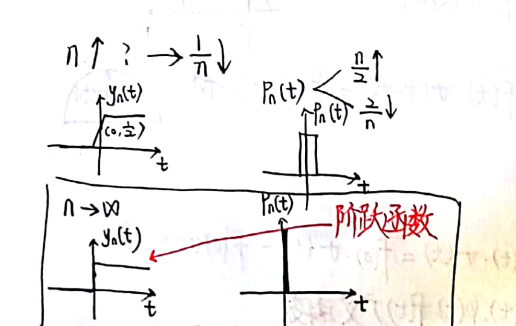 n↑ ? → 1/n↓
yn(t)
(0,1/2)
t
Pn(t) < n/2↑
2/n↓
Pn(t)
t
n→∞
yn(t)
t
Pn(t)
t
阶跃函数